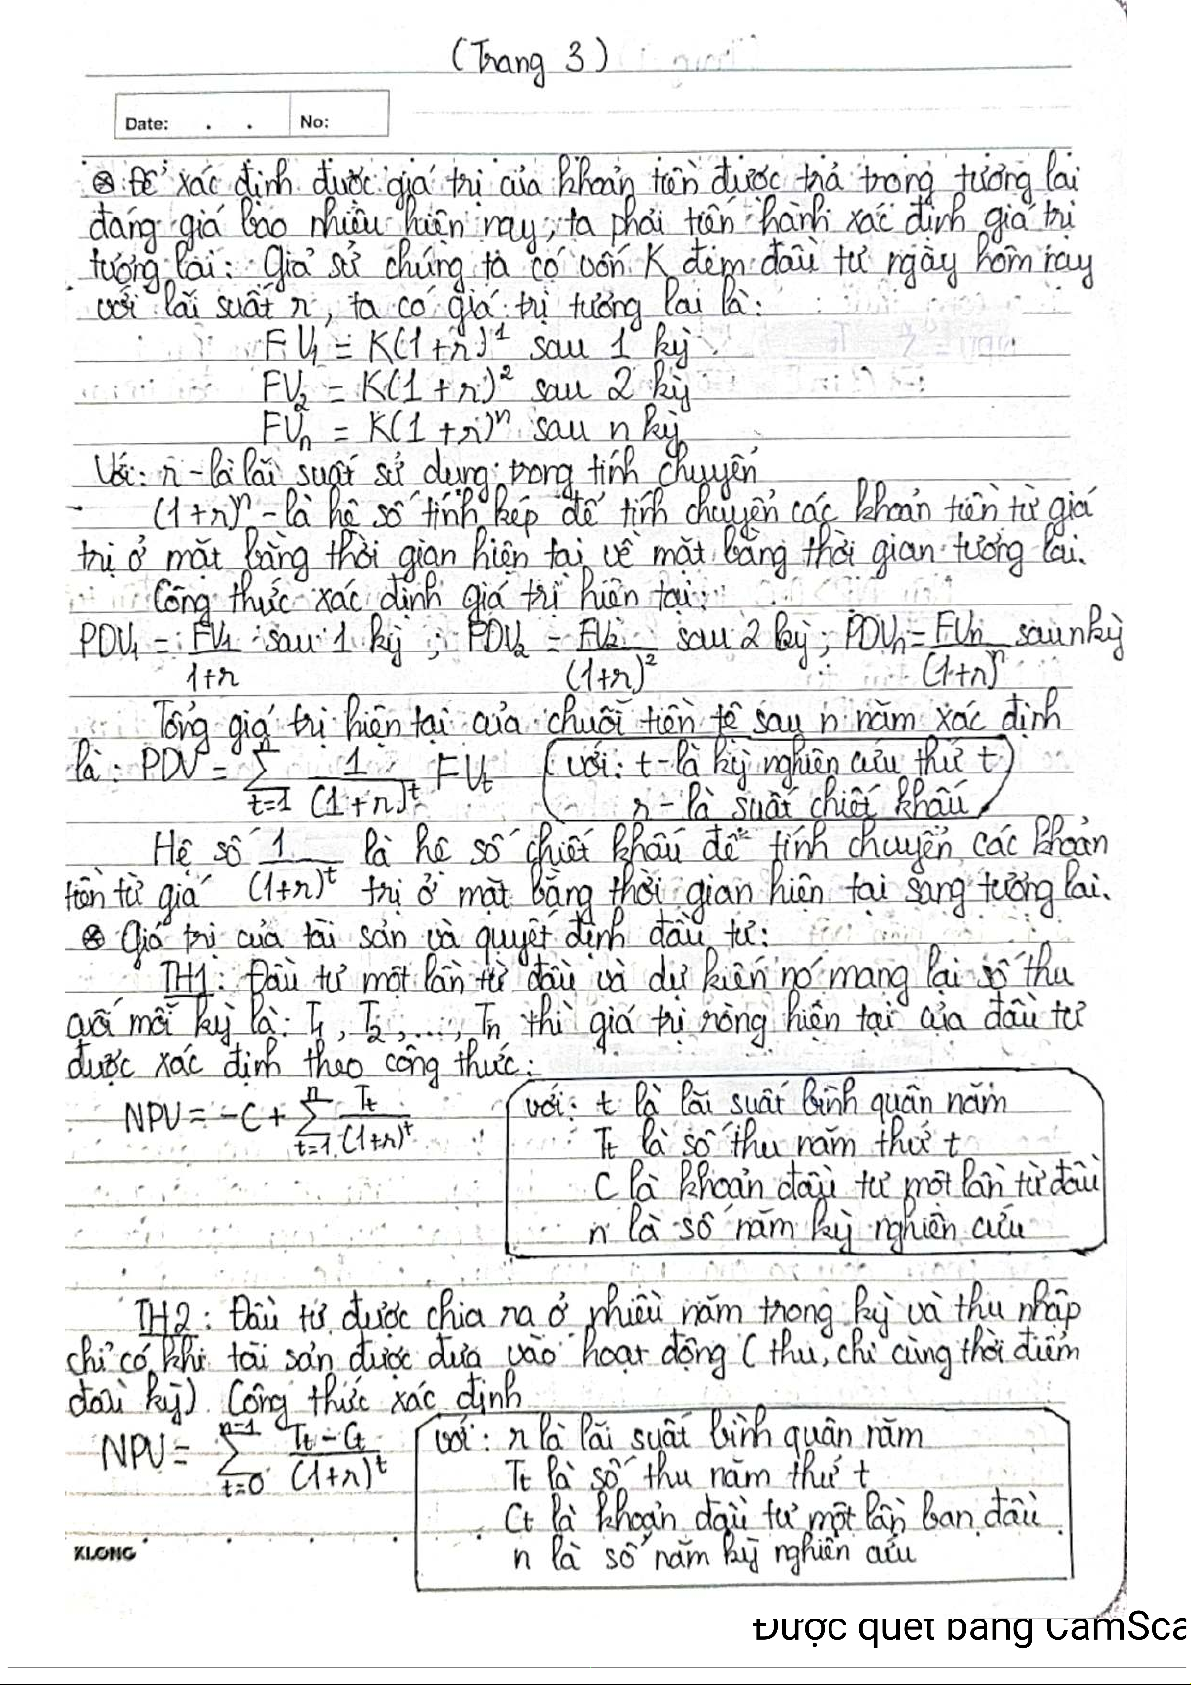 (Trang 3)
Date: . . No:
⊗ Để xác định được giá trị của khoản tiền được trả trong tương lai
đáng giá bao nhiêu hiện nay, ta phải tiến hành xác định giá trị
tương lai: Giả sử chúng ta có vốn K đem đầu tư ngày hôm nay
với lãi suất r, ta có giá trị tương lai là:
FV₁ = K(1+r)¹ sau 1 kỳ
FV₂ = K(1+r)² sau 2 kỳ
FVₙ = K(1+r)ⁿ sau n kỳ
Với: r - là lãi suất sử dụng trong tính chuyển
(1+r)ⁿ - là hệ số tính kép để tính chuyển các khoản tiền từ giá
trị ở mặt bằng thời gian hiện tại về mặt bằng thời gian tương lai.
Công thức xác định giá trị hiện tại:
PDV₁ = FV₁/(1+r) sau 1 kỳ ; PDV₂ = FV₂/(1+r)² sau 2 kỳ ; PDVₙ = FVₙ/(1+r)ⁿ sau n kỳ
Tổng giá trị hiện tại của chuỗi tiền tệ sau n năm xác định
là: PDV = Σⁿₜ₌₁ 1/(1+r)ᵗ FVₜ (với: t - là kỳ nghiên cứu thứ t
r - là suất chiết khấu)
Hệ số 1/(1+r)ᵗ là hệ số chiết khấu để tính chuyển các khoản
tiền từ giá trị ở mặt bằng thời gian hiện tại sang tương lai.
⊗ Giá trị của tài sản và quyết định đầu tư:
TH1: Đầu tư một lần từ đầu và dự kiến nó mang lại số thu
cuối mỗi kỳ là: T₁, T₂, ..., Tₙ thì giá trị ròng hiện tại của đầu tư
được xác định theo công thức:
NPV = -C + Σⁿₜ₌₁ Tₜ/(1+r)ᵗ
với: t là lãi suất bình quân năm
Tₜ là số thu năm thứ t
C là khoản đầu tư một lần từ đầu
n là số năm kỳ nghiên cứu
TH2: Đầu tư được chia ra ở nhiều năm trong kỳ và thu nhập
chỉ có khi tài sản được đưa vào hoạt động (thu, chi cùng thời điểm
đầu kỳ). Công thức xác định
NPV = Σⁿ⁻¹ₜ₌₀ (Tₜ - Cₜ)/(1+r)ᵗ
với: r là lãi suất bình quân năm
Tₜ là số thu năm thứ t
Cₜ là khoản đầu tư một lần ban đầu
n là số năm kỳ nghiên cứu
KLONG
Được quét bằng CamSca